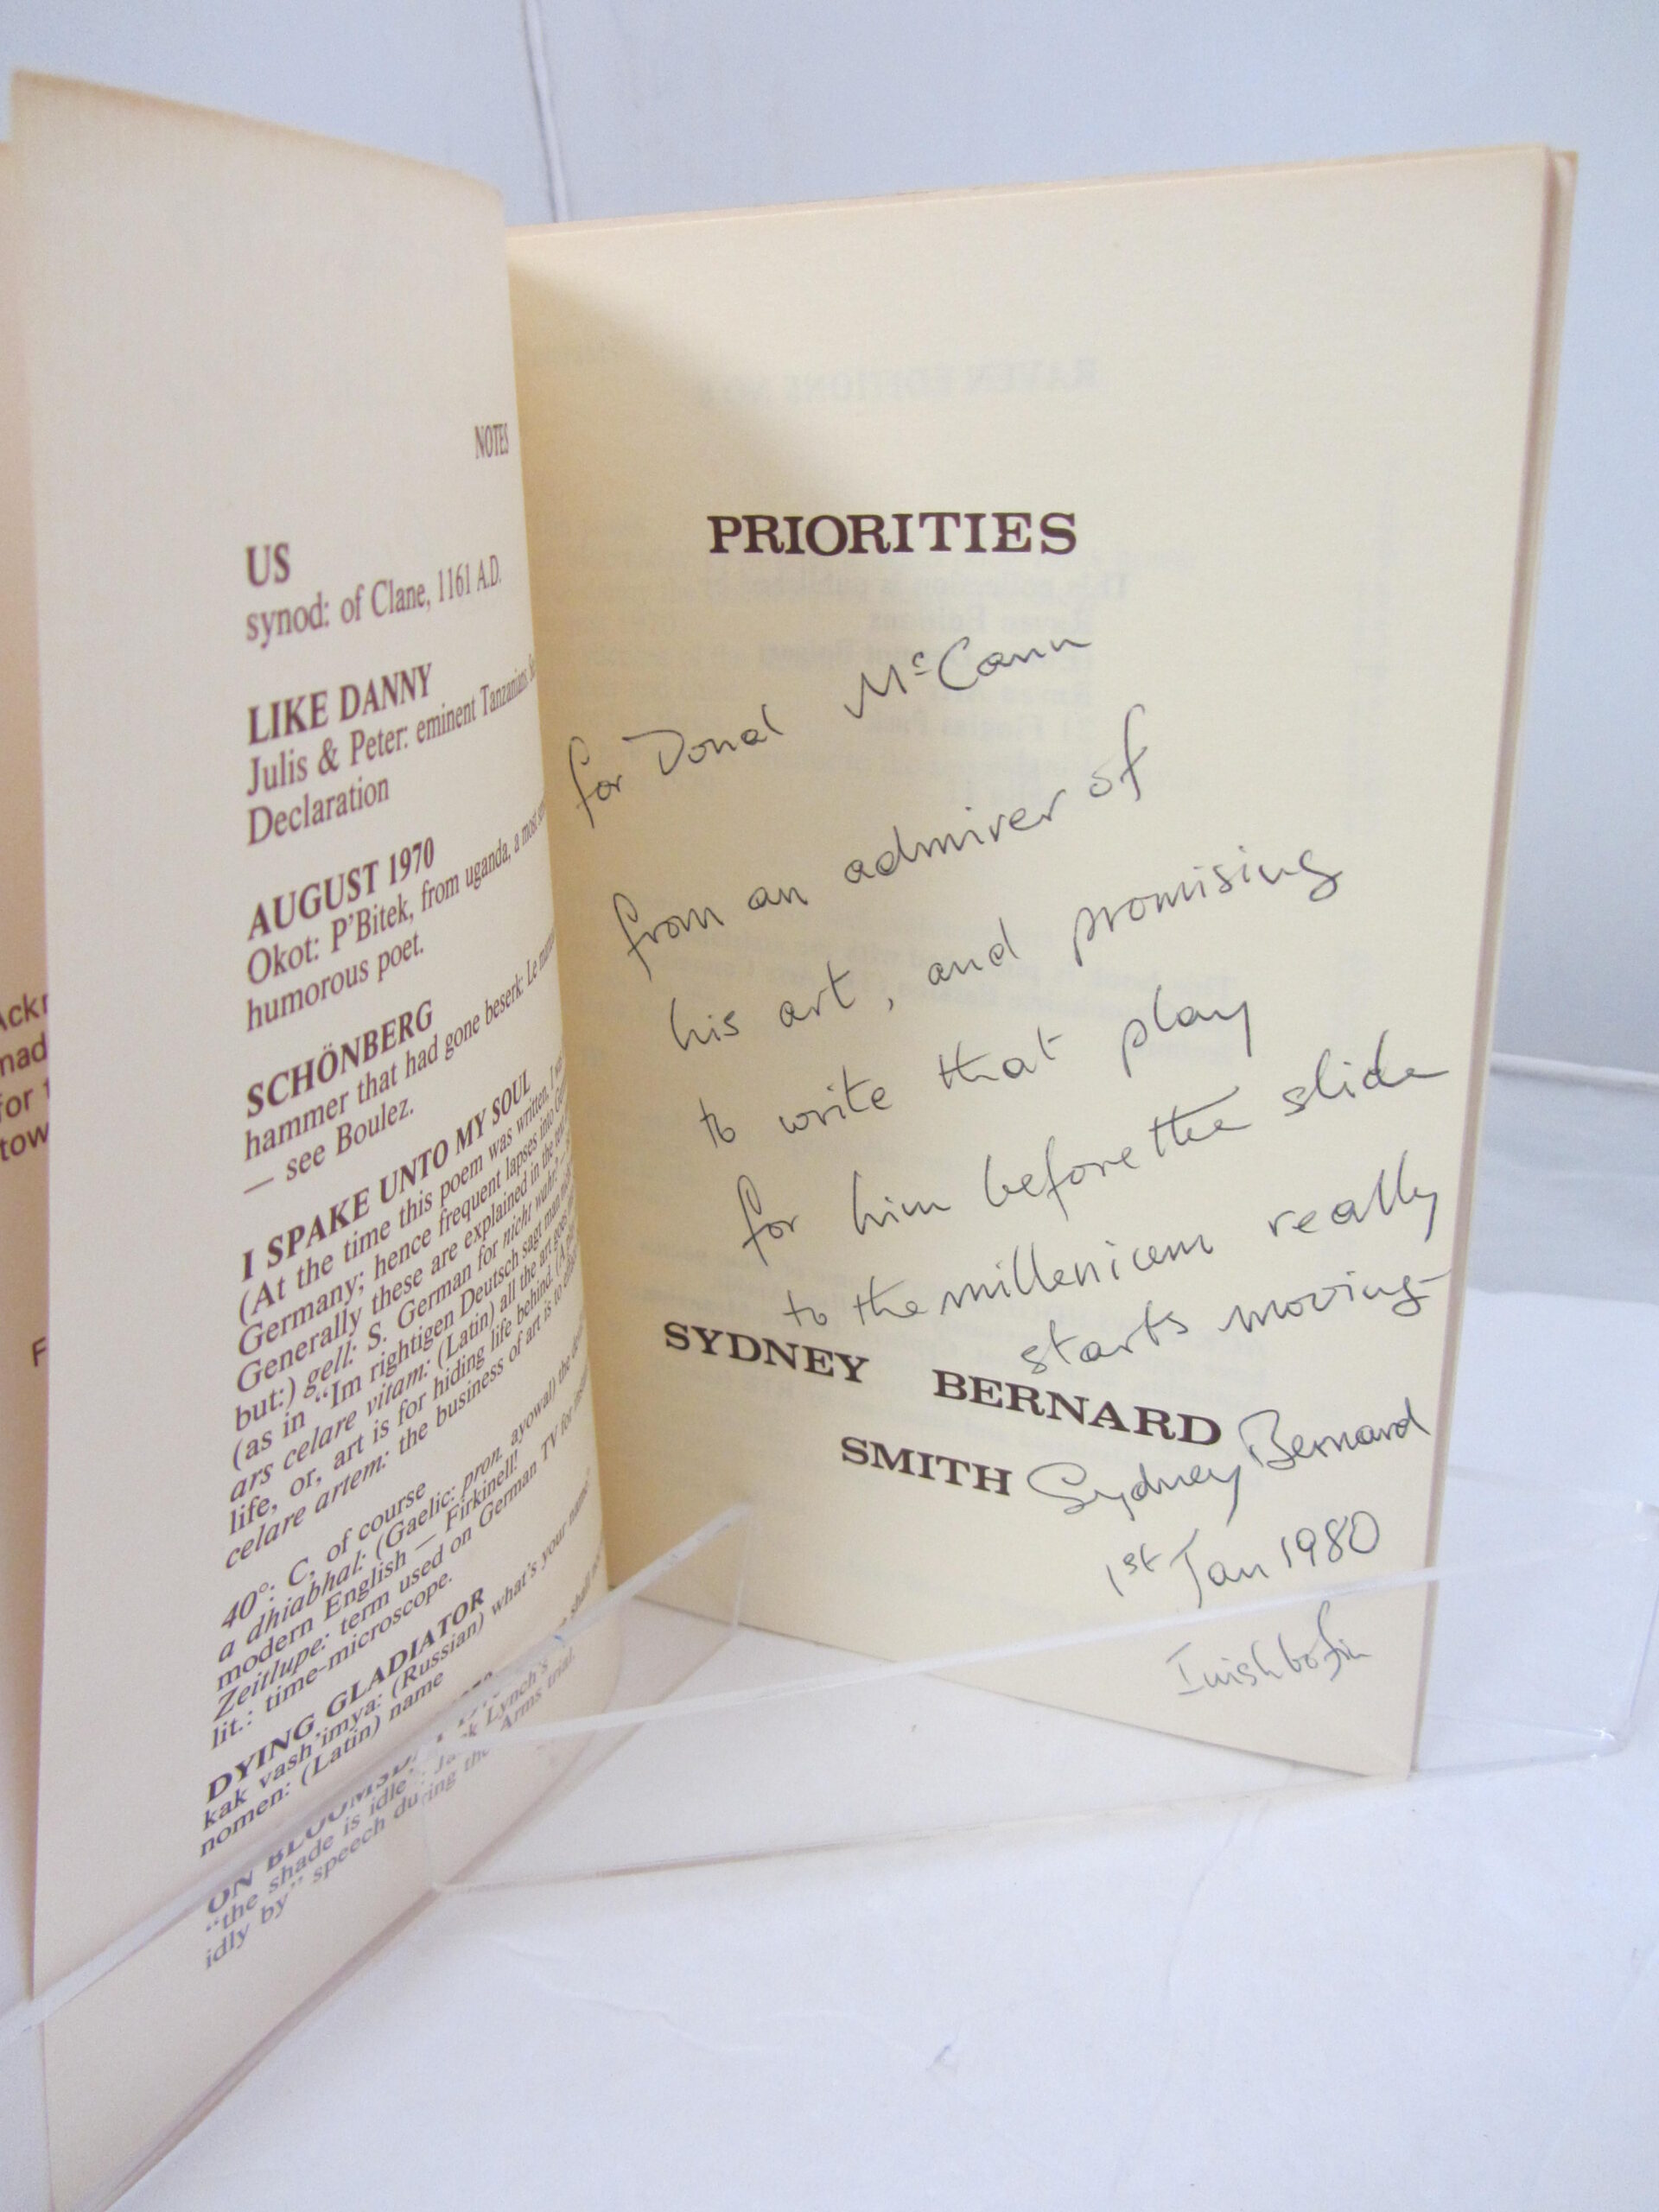 Ackr
mad
for
tow
F
NOTES
US
synod: of Clane, 1161 A.D.
LIKE DANNY
Julis & Peter: eminent Tanzanians:
Declaration
AUGUST 1970
Okot: P'Bitek, from uganda, a most
humorous poet.
SCHÖNBERG
hammer that had gone beserk: Le
— see Boulez.
I SPAKE UNTO MY SOUL
(At the time this poem was written, I
Germany; hence frequent lapses into
Generally these are explained in the
but:) gell: S. German for nicht wahr?
(as in "Im rightigen Deutsch sagt man
ars celare vitam: (Latin) all the art goes
life, or, art is for hiding life behind.
celare artem: the business of art is to
40°: C, of course
a dhiabhal: (Gaelic: pron. ayowal) the
modern English — Firkinell!
Zeitlupe: term used on German TV for
lit.: time-microscope.
DYING GLADIATOR
kak vash'imya: (Russian) what's your name
nomen: (Latin) name
ON
"the shade is idle": Jack Lynch's shall
idly by" speech during the Arms trial.
PRIORITIES
for Donal McCann
from an admirer of
his art, and promising
to write that play
for him before the slide
to the millenium really
starts moving
SYDNEY BERNARD
SMITH
Sydney Bernard
1st Jan 1980
Inishbofin